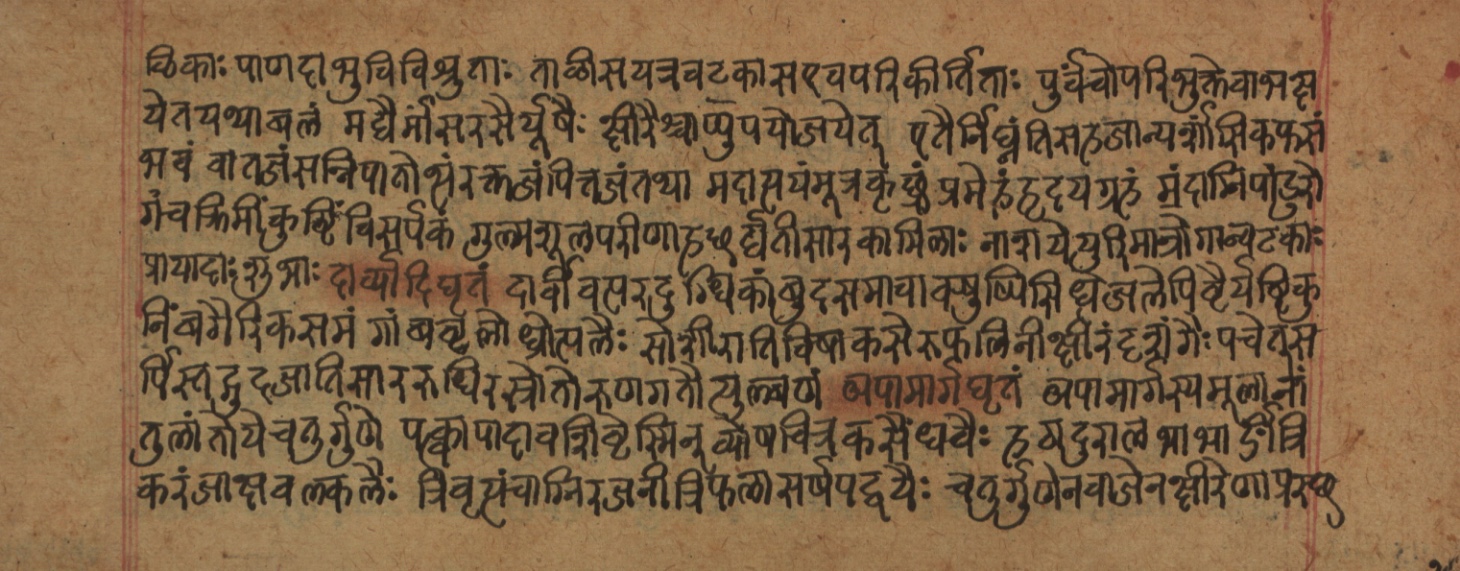 ठिकाः पाणदा भुविविश्रुताः ताळीसपत्रवटकासएवपरिकीर्तिताः पुर्वंचोपरिभुक्तेवाभक्ष
येतयथाबलं मद्यैर्मांसरसैर्यूषैः क्षीरैश्चाप्युपयोजयेत् एतैर्निघ्नंतिसहजान्यर्शांसिकफसं
भवं वातजंसन्निपातोत्थंरक्तजंपित्तजंतथा मदात्ययंमूत्रकृछ्रं प्रमेहंहृदयग्रहं मंदाग्निपांडुरो
गंचक्रिमींकुष्टिंविसर्पकं गुल्मशूलपरीणाहछर्द्यतीसारकामिलाः नाशयेयुरिमात्रोगान्वटकाः
प्रायादाः शुभाः दार्व्यादिघृतं दार्वीवत्सरुदुग्धिकांबुदसमाचाक्षुष्पिसिध्धंजलेपिष्टैर्यष्टिकु
निंबगैरिकसमं गांबष्टलोध्रोत्पलैः सोशीरातिविषाकसेरुफलिनीक्षीरंदशांगैः पचेत्स
र्पिस्तद्गुदजातिसाररुधिरस्त्रोतोरुणगतौत्युल्बणं अपामार्गघृतं अपामार्गस्यमूलानां
तुलांतोयेचतुर्गुणे पक्त्वापादावशिष्टेस्मिन् व्योषचित्रकसैंधवैः हठादुरालभाभार्ङ्गीत्रि
करंजाक्षवलकलैः त्रिवृत्पंचाग्निरजनीत्रिफलासर्षपद्वयैः चतुर्गुणेनवाजेनक्षीरेणाप्रस्छ